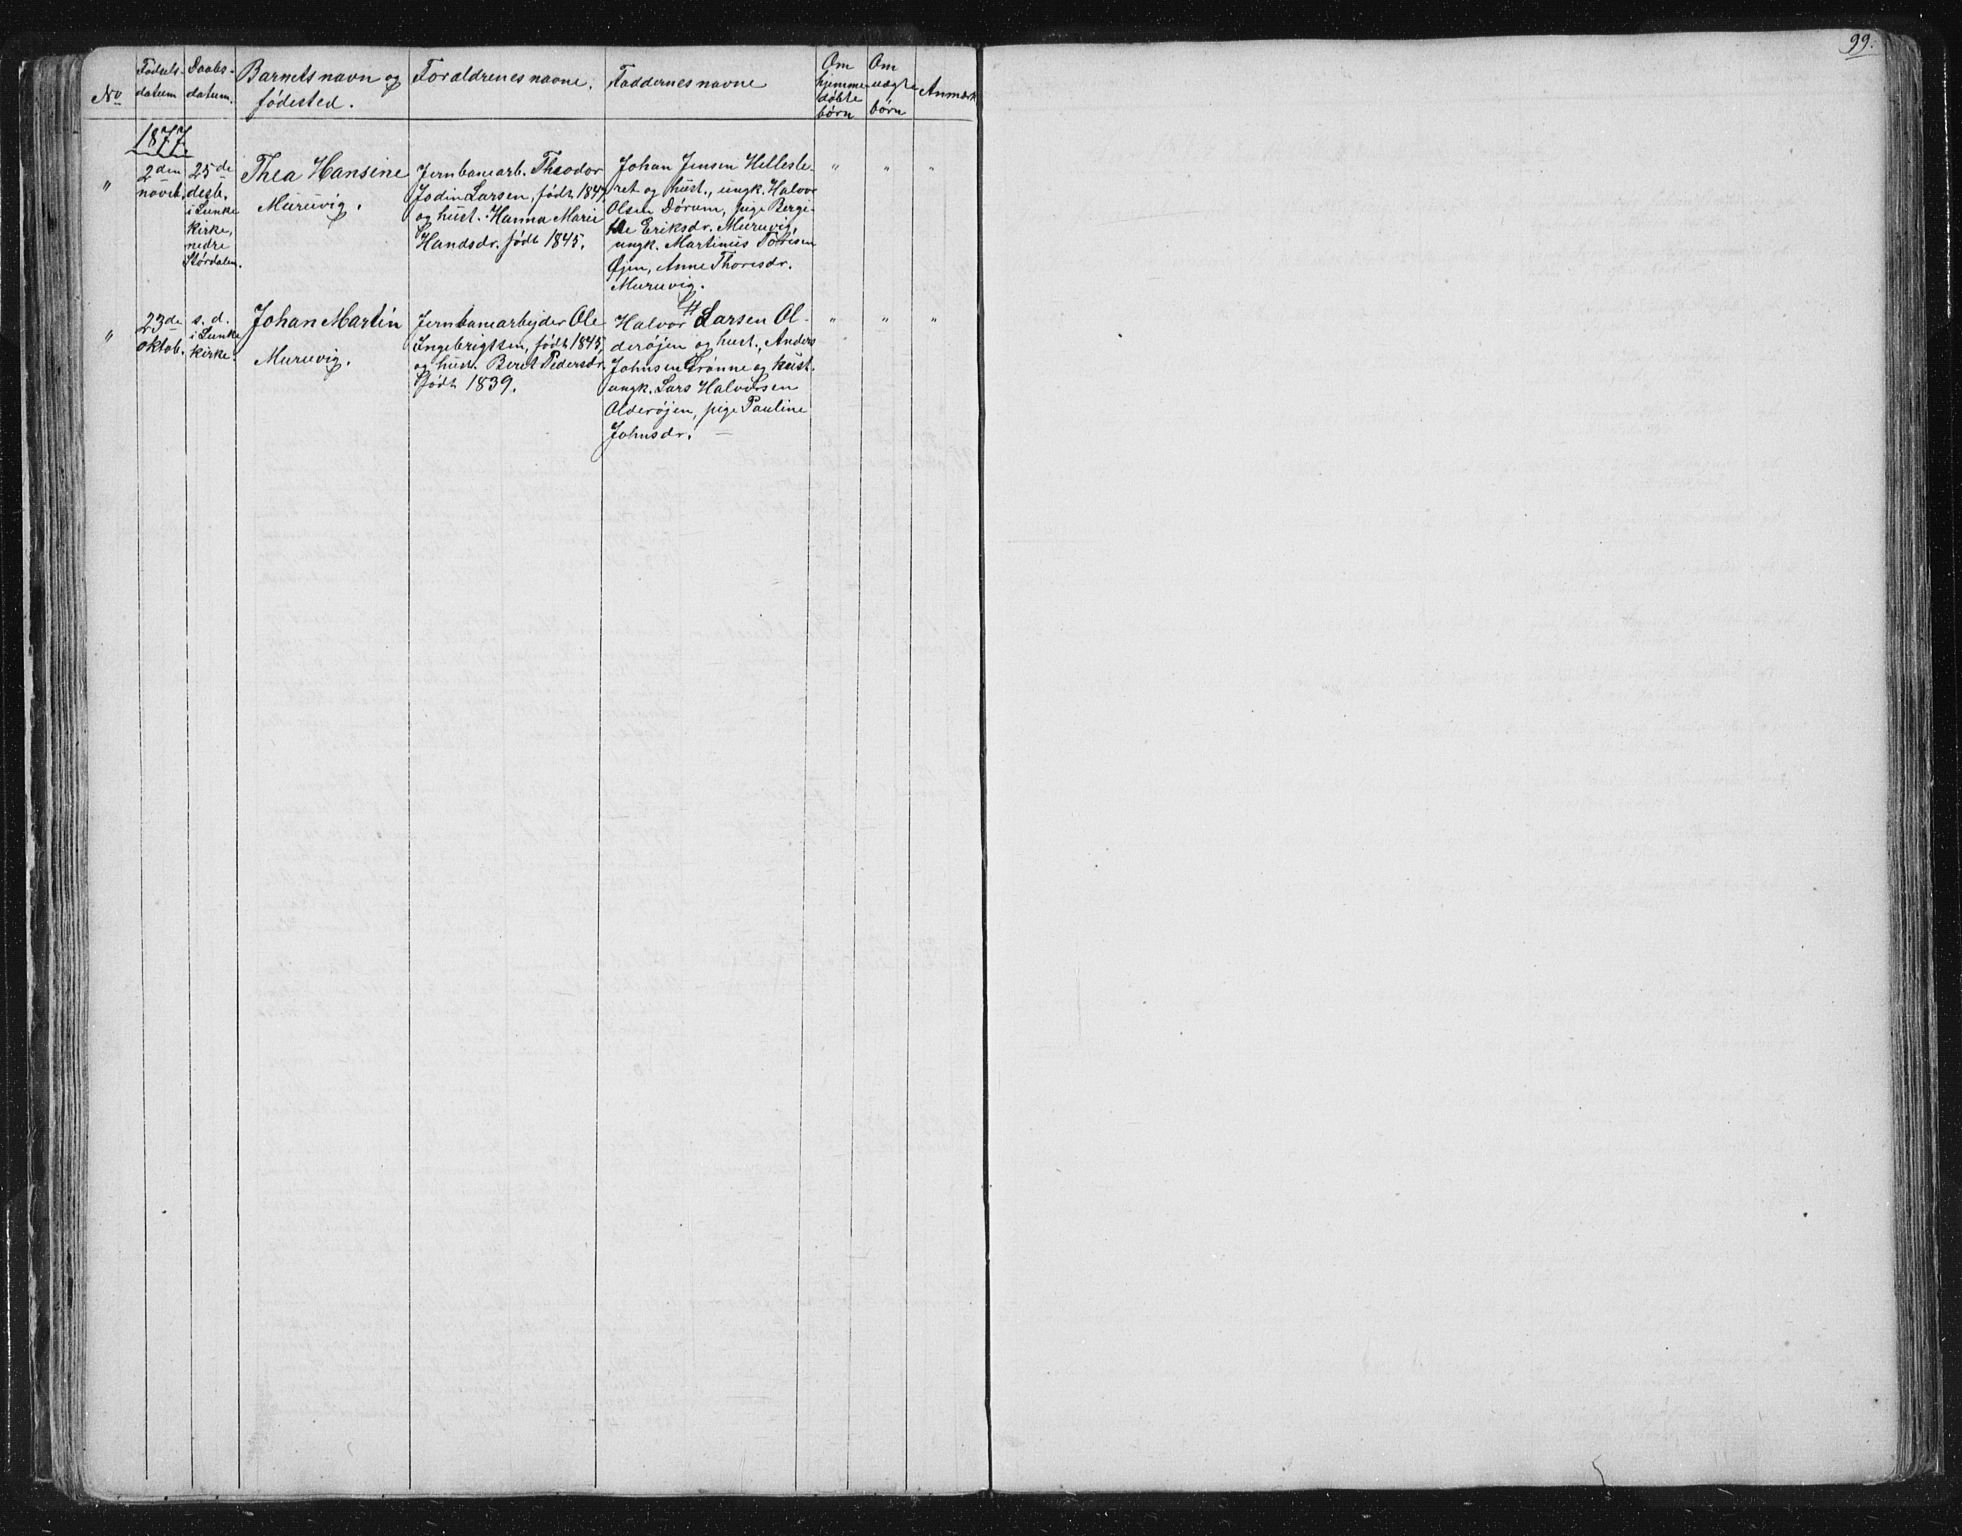 99.
No
Fødsels-
datum
Daabs-
datum.
Barnets navn og
fødested.
Forældrenes navne.
Faddernes navne
Om
hjemme
døbte
børn
Om
uægte
børn
Anmærk
1877.
"
2den
noveb.
25de
desb.
i Lunke
kirke,
nedre
Størdalen.
Thea Hansine
Muruvig.
Jernbanearb. Theodor
Jodin Larsen, født 1847,
og hust. Hanna Marie
Handsdr. født 1845.
Johan Jensen Hellesle-
ret og hust., ungk. Halvor
Olsen Dørum, pige Bergi-
tte Eriksdr. Muruvig,
ungk. Martinus Torisen
Øjen, Anne Thoresdr.
Muruvig.
" " "
"
23de
oktob.
s. d.
i Lunke
kirke.
Johan Martin
Muruvig.
Jernbanearbejder Ole
Ingebrigtsen, født 1845,
og hust. Beret Pedersdr.
født 1839.
Halvor Larsen Al-
derøjen og hust., Anders
Johnsen Trønne og hust.
ungk. Lars Halvorsen
Alderøjen, pige Pauline
Johnsdr. —
" " "